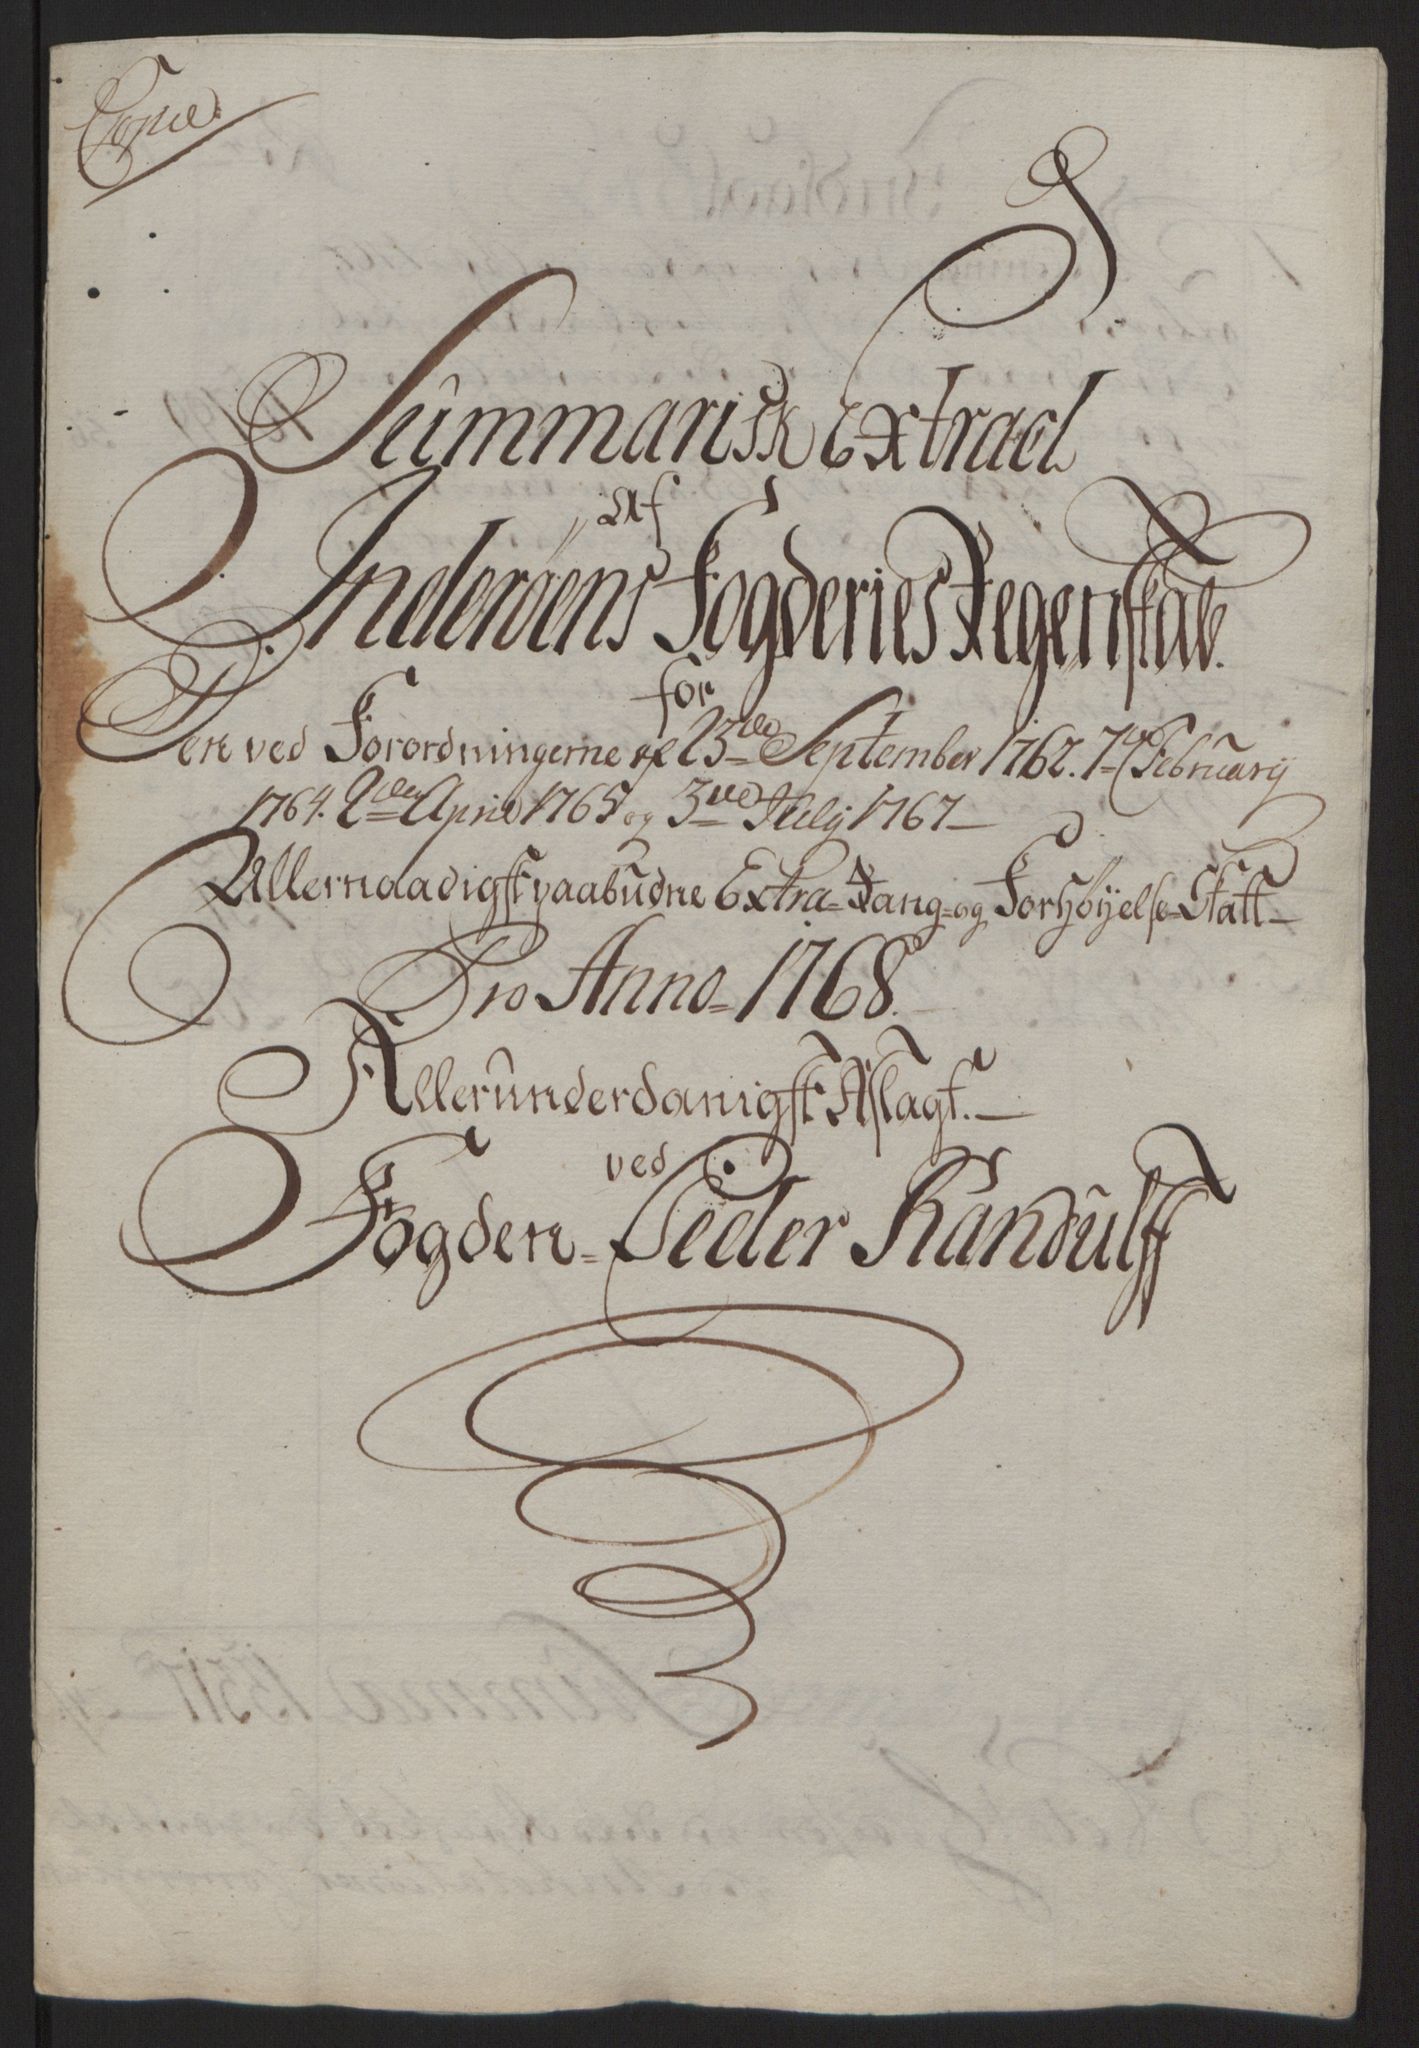 Copie.
Summarisk Extract
Af
Inderöens Fogderies Regenskab.
for
Den ved Forordningerne af 23de September 1762. 7de February
1764. 2den April 1765 og 3die July 1767
Allernaadigst paabudne Extra- Rang- og Forhöyelse- Skatt
Pro Anno 1768.
Allerunderdanigst Aflagt.
ved
Fogden- Peder Randulff